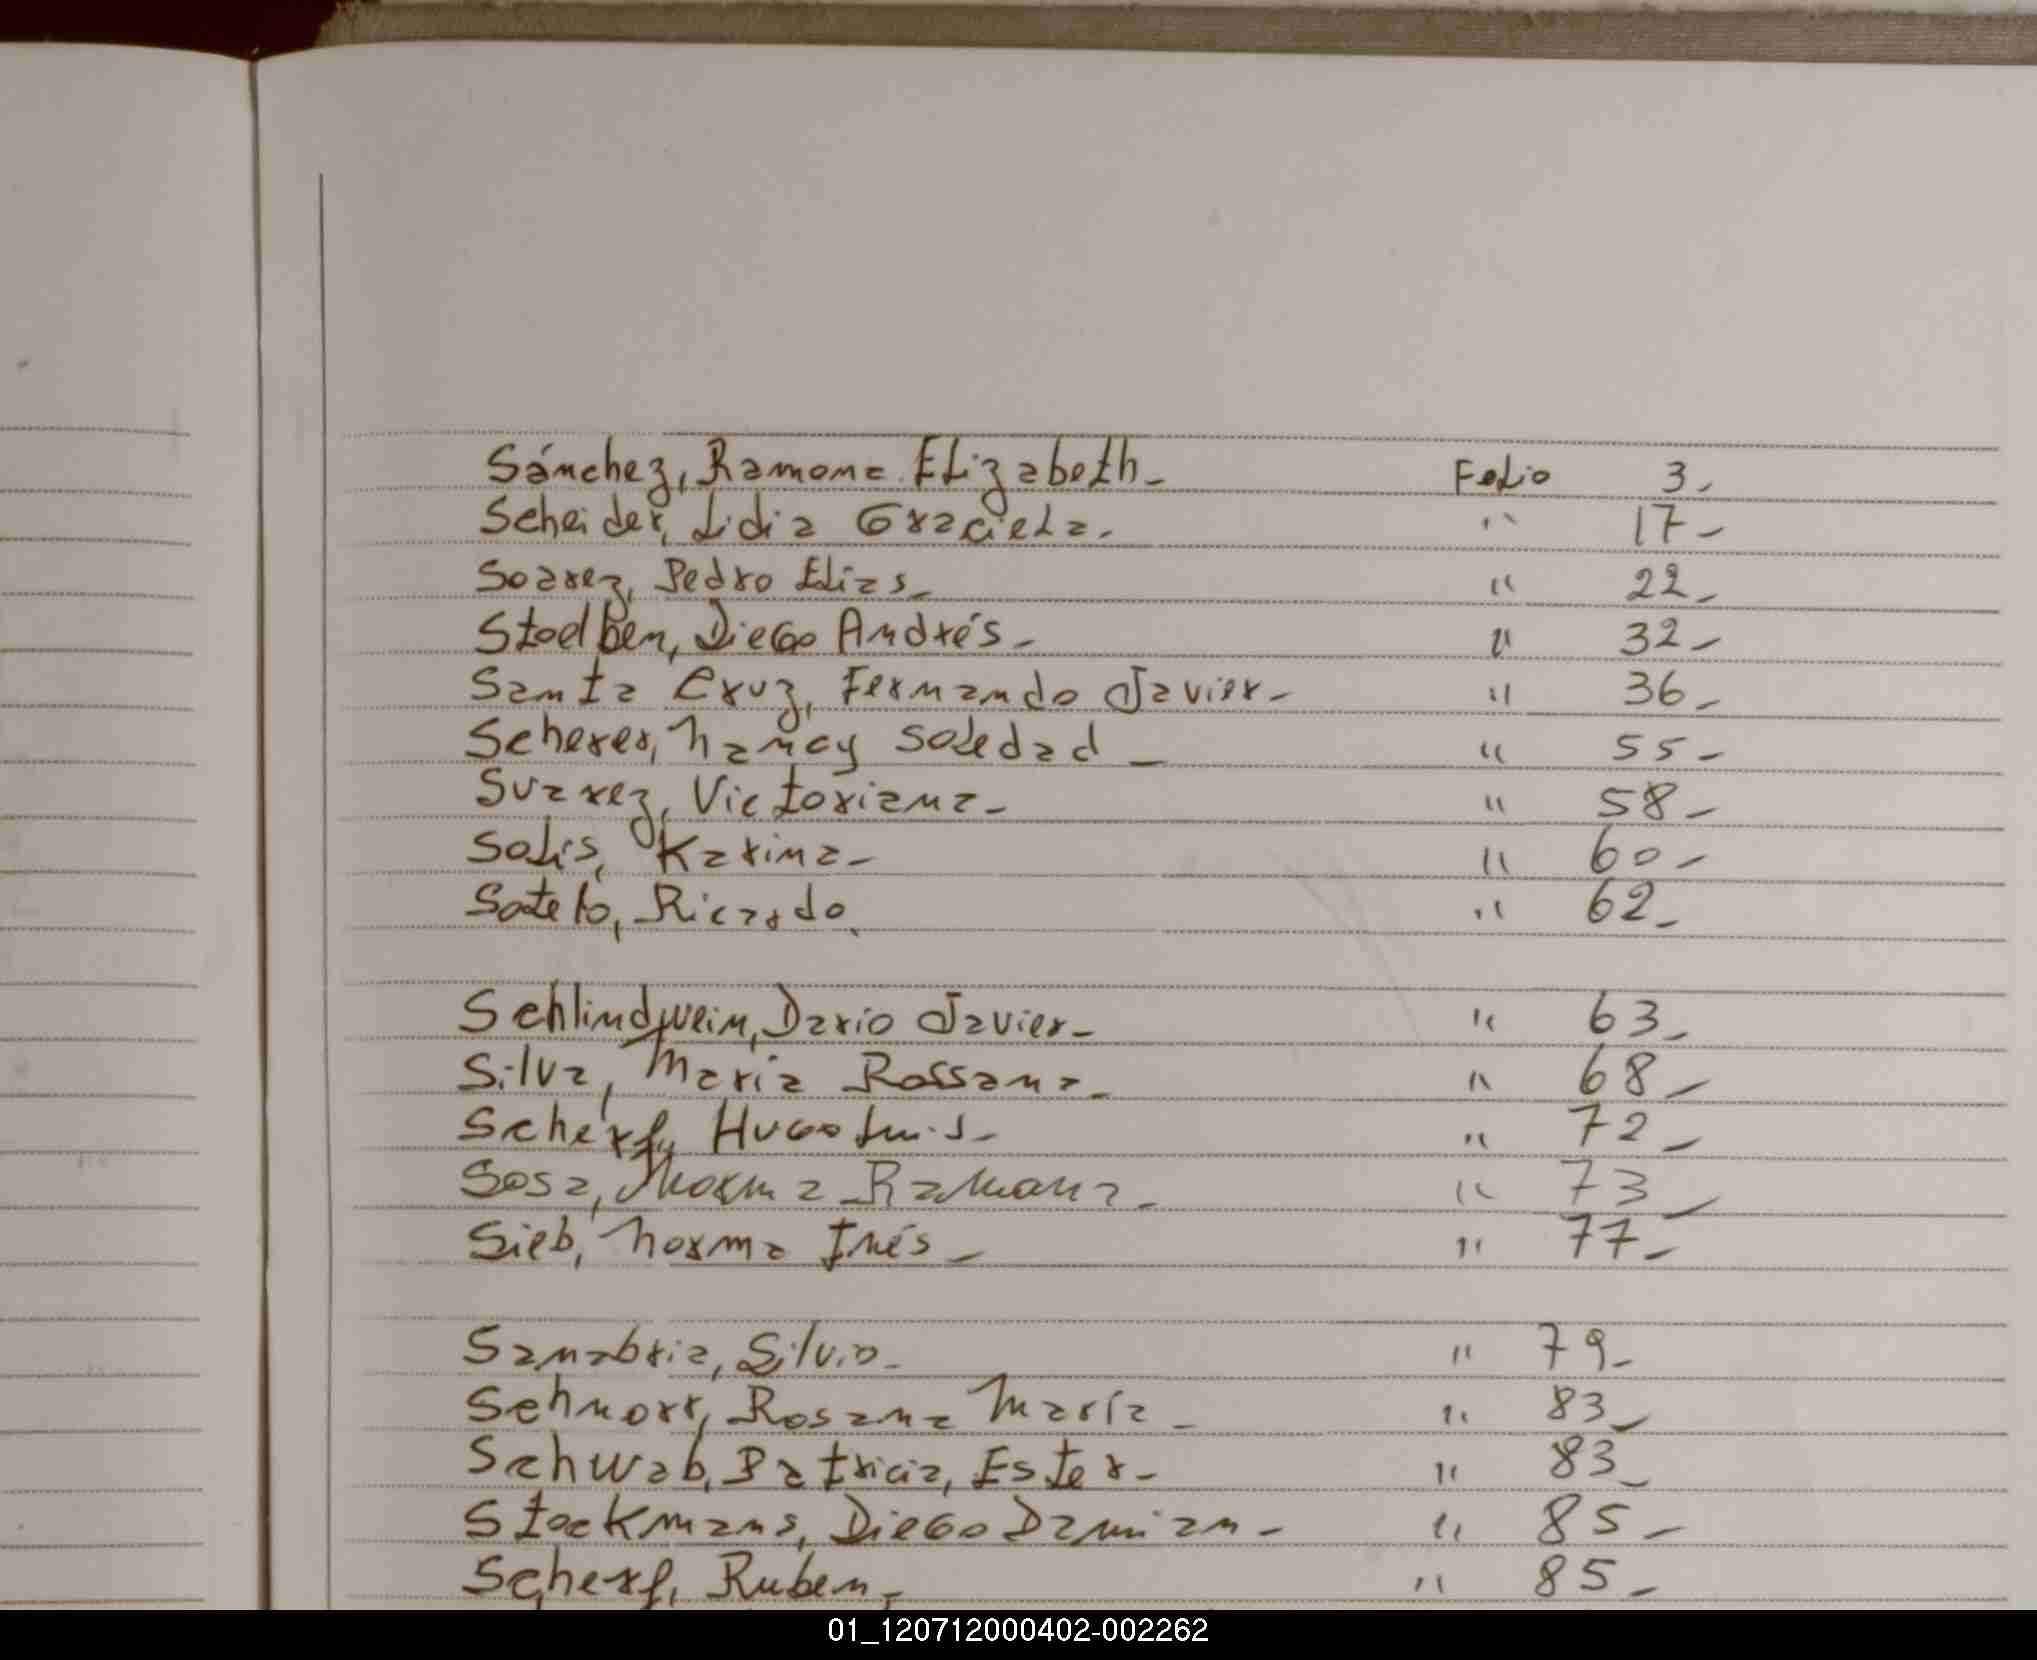 Sánchez, Ramona Elizabeth- Folio 3-
Scheider, Lidia Graciela- " 17-
Soarez, Pedro Elias- " 22-
Stoelben, Diego Andrés- " 32-
Santa Cruz, Fernando Javier- " 36-
Scherer, Nancy Soledad - " 55-
Suarez, Victoriana- " 58-
Solis, Karina- " 60-
Sotelo, Ricardo. " 62-
Schlindwein, Dario Javier- " 63-
Silva, María Rossana- " 68-
Scherf, Hugo Luis- " 72-
Sosa, Norma Ramona- " 73-
Sieb, Norma Inés- " 77-
Sanabria, Silvio- " 79-
Schnorr, Rosana María- " 83-
Schwab, Patricia, Ester- " 83-
Stockmans, Diego Damian- " 85-
Scherf, Ruben- " 85-
01_120712000402-002262